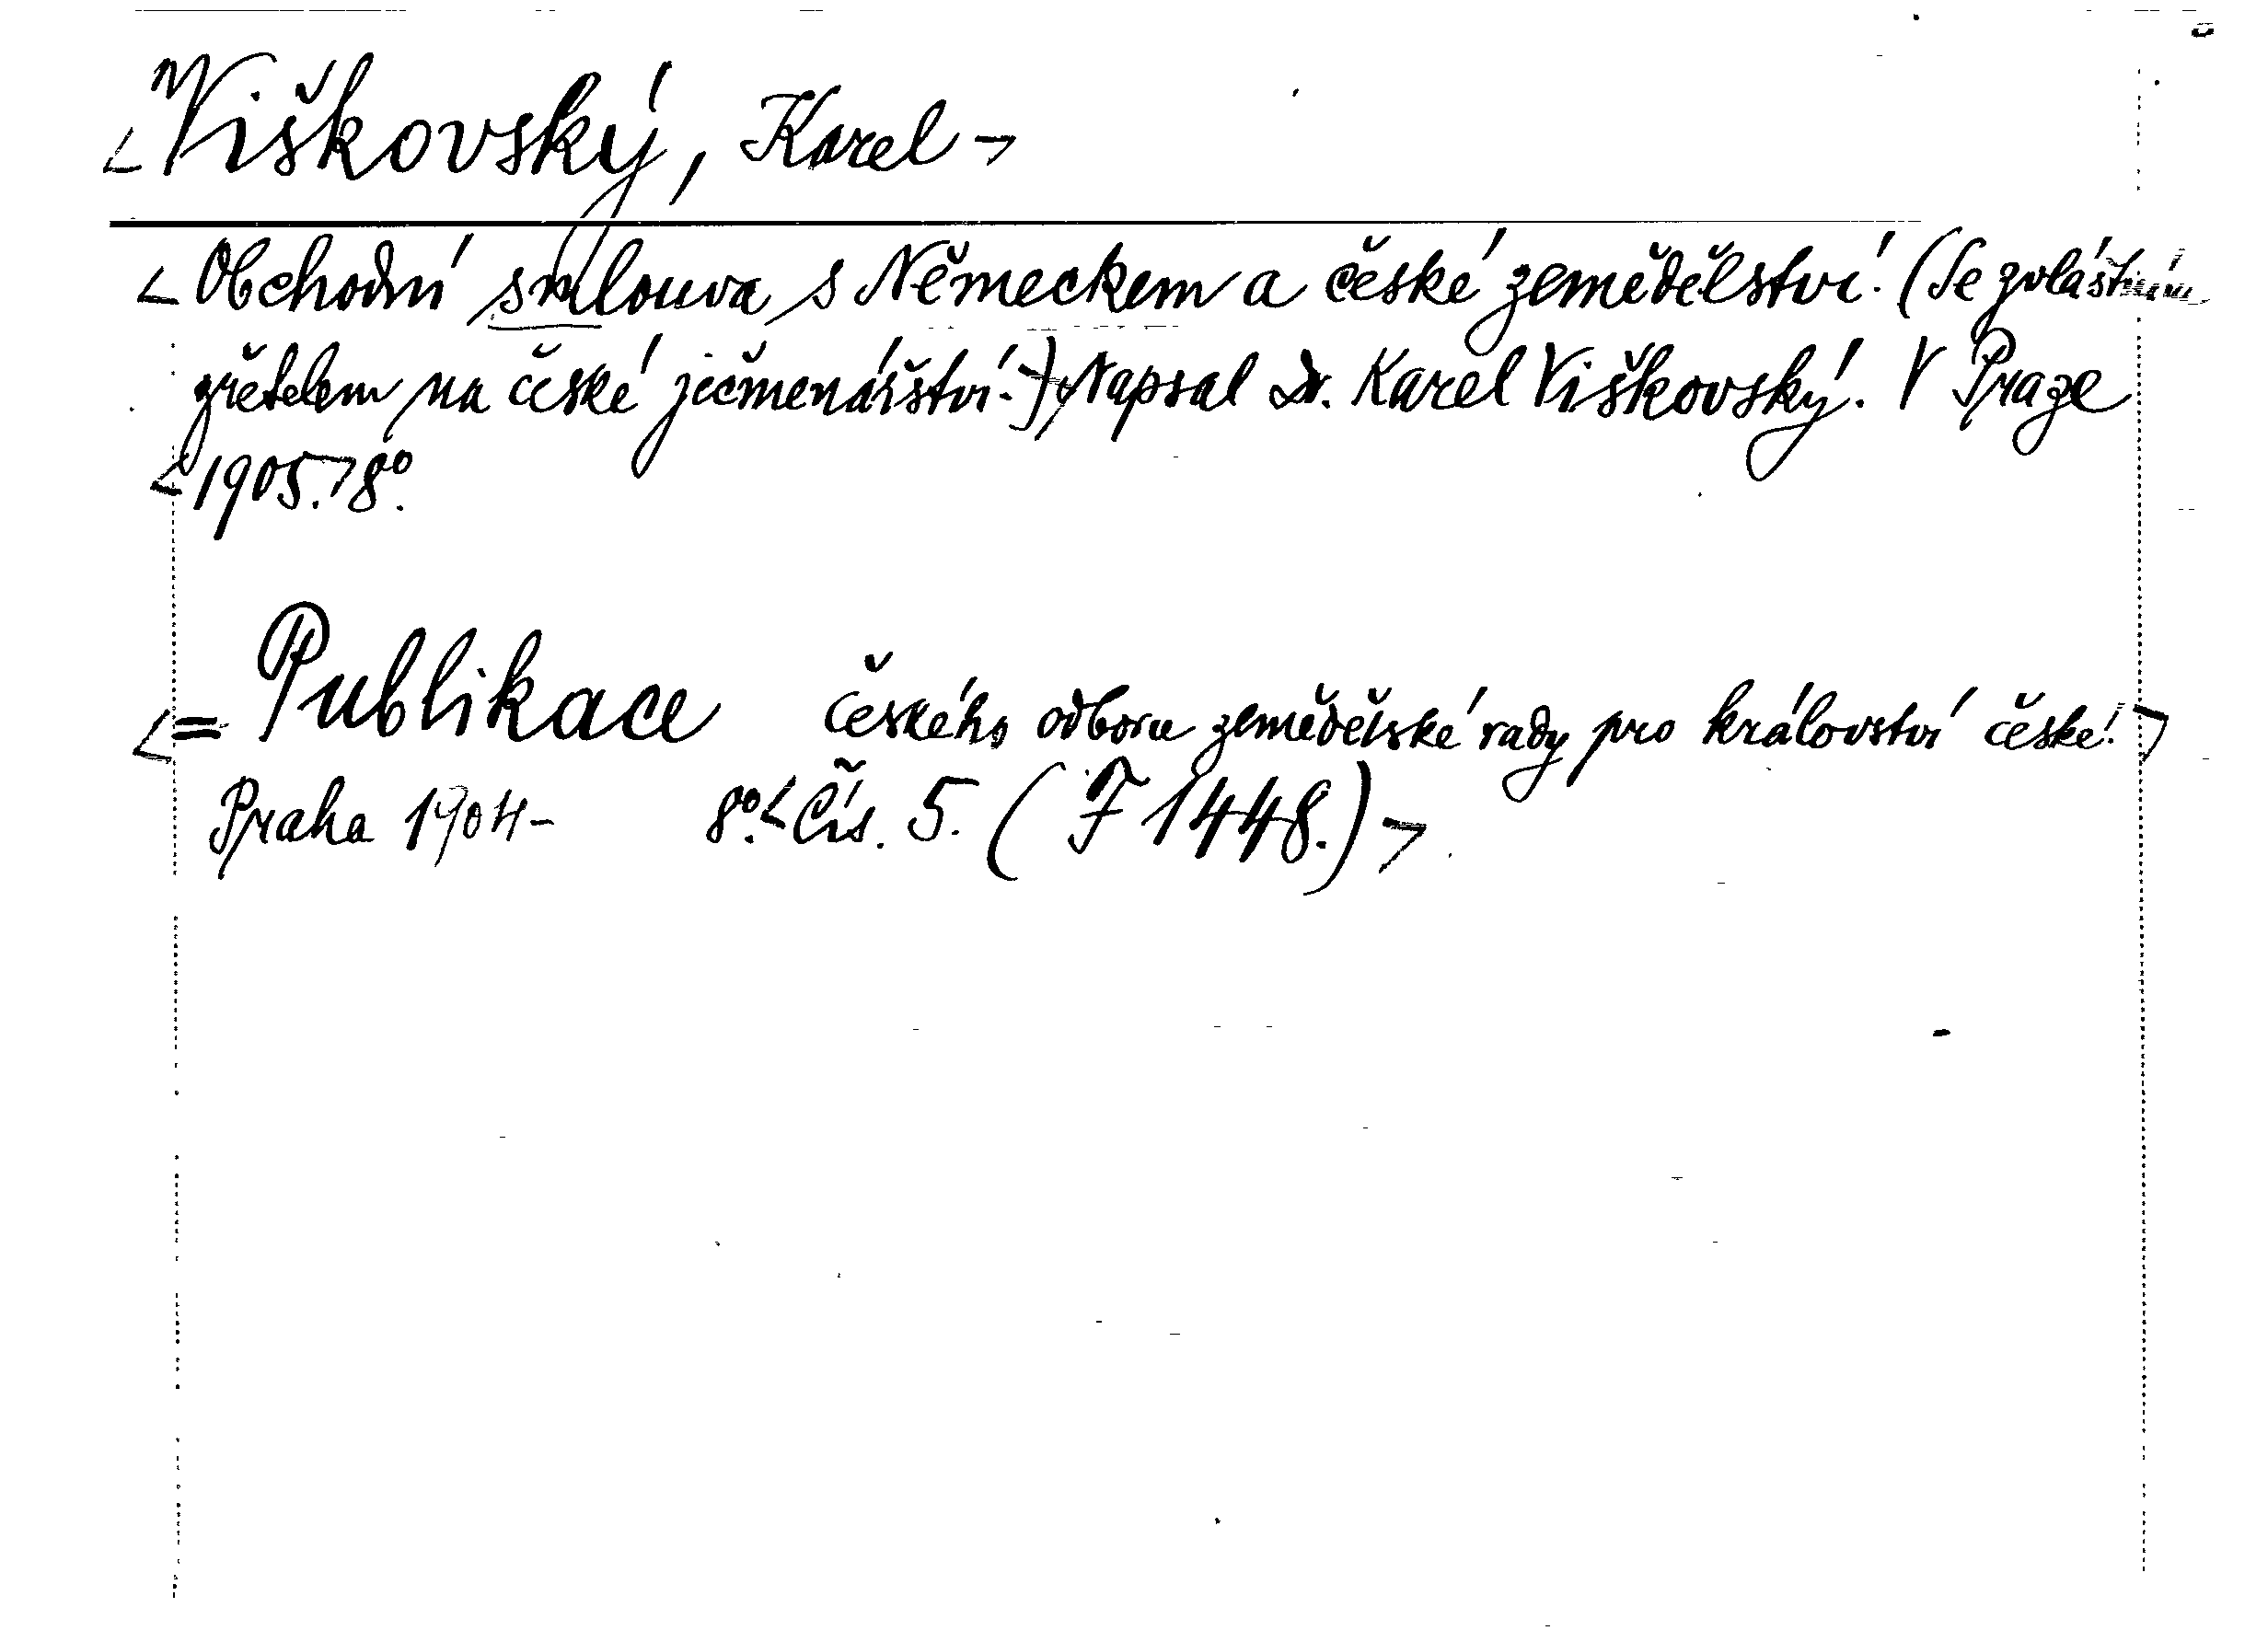 <Viškovský, Karel>
<Obchodní smlouva s Německem a české zemědělství. (Se zvláštním
zřetelem na české ječmenářství.)> Napsal Dr. Karel Viškovský. V Praze
<1905.> 8°.
<= Publikace českého odboru zemědělské rady pro království české.>
Praha 1904- 8°.< Čís. 5. (F 1448.)>